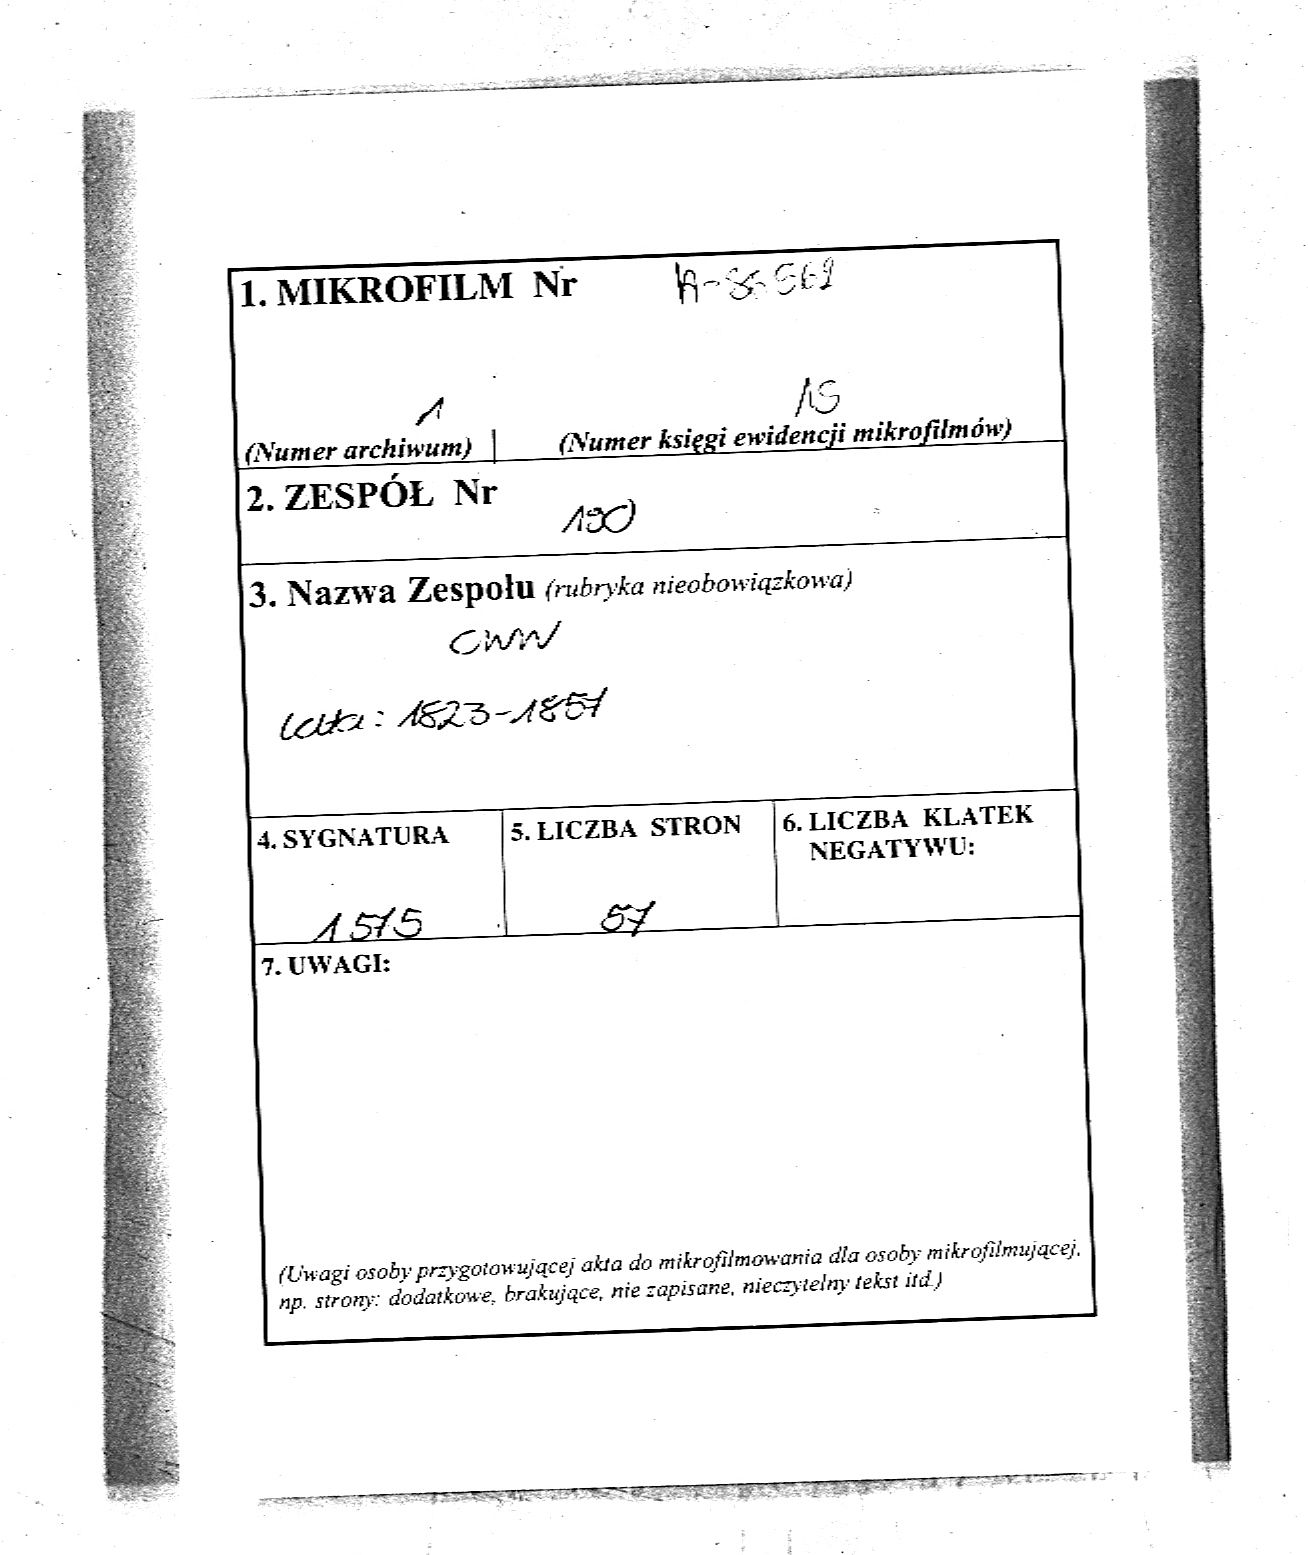 1. MIKROFILM Nr
1 15
(Numer archiwum) | (Numer księgi ewidencji mikrofilmów)
2. ZESPÓŁ Nr
190
3. Nazwa Zespołu (rubryka nieobowiązkowa)
CWW
lata: 1823-1857
4. SYGNATURA 5. LICZBA STRON 6. LICZBA KLATEK
NEGATYWU:
1575 57
7. UWAGI:
(Uwagi osoby przygotowującej akta do mikrofilmowania dla osoby mikrofilmującej,
np. strony: dodatkowe, brakujące, nie zapisane, nieczytelny tekst itd.)